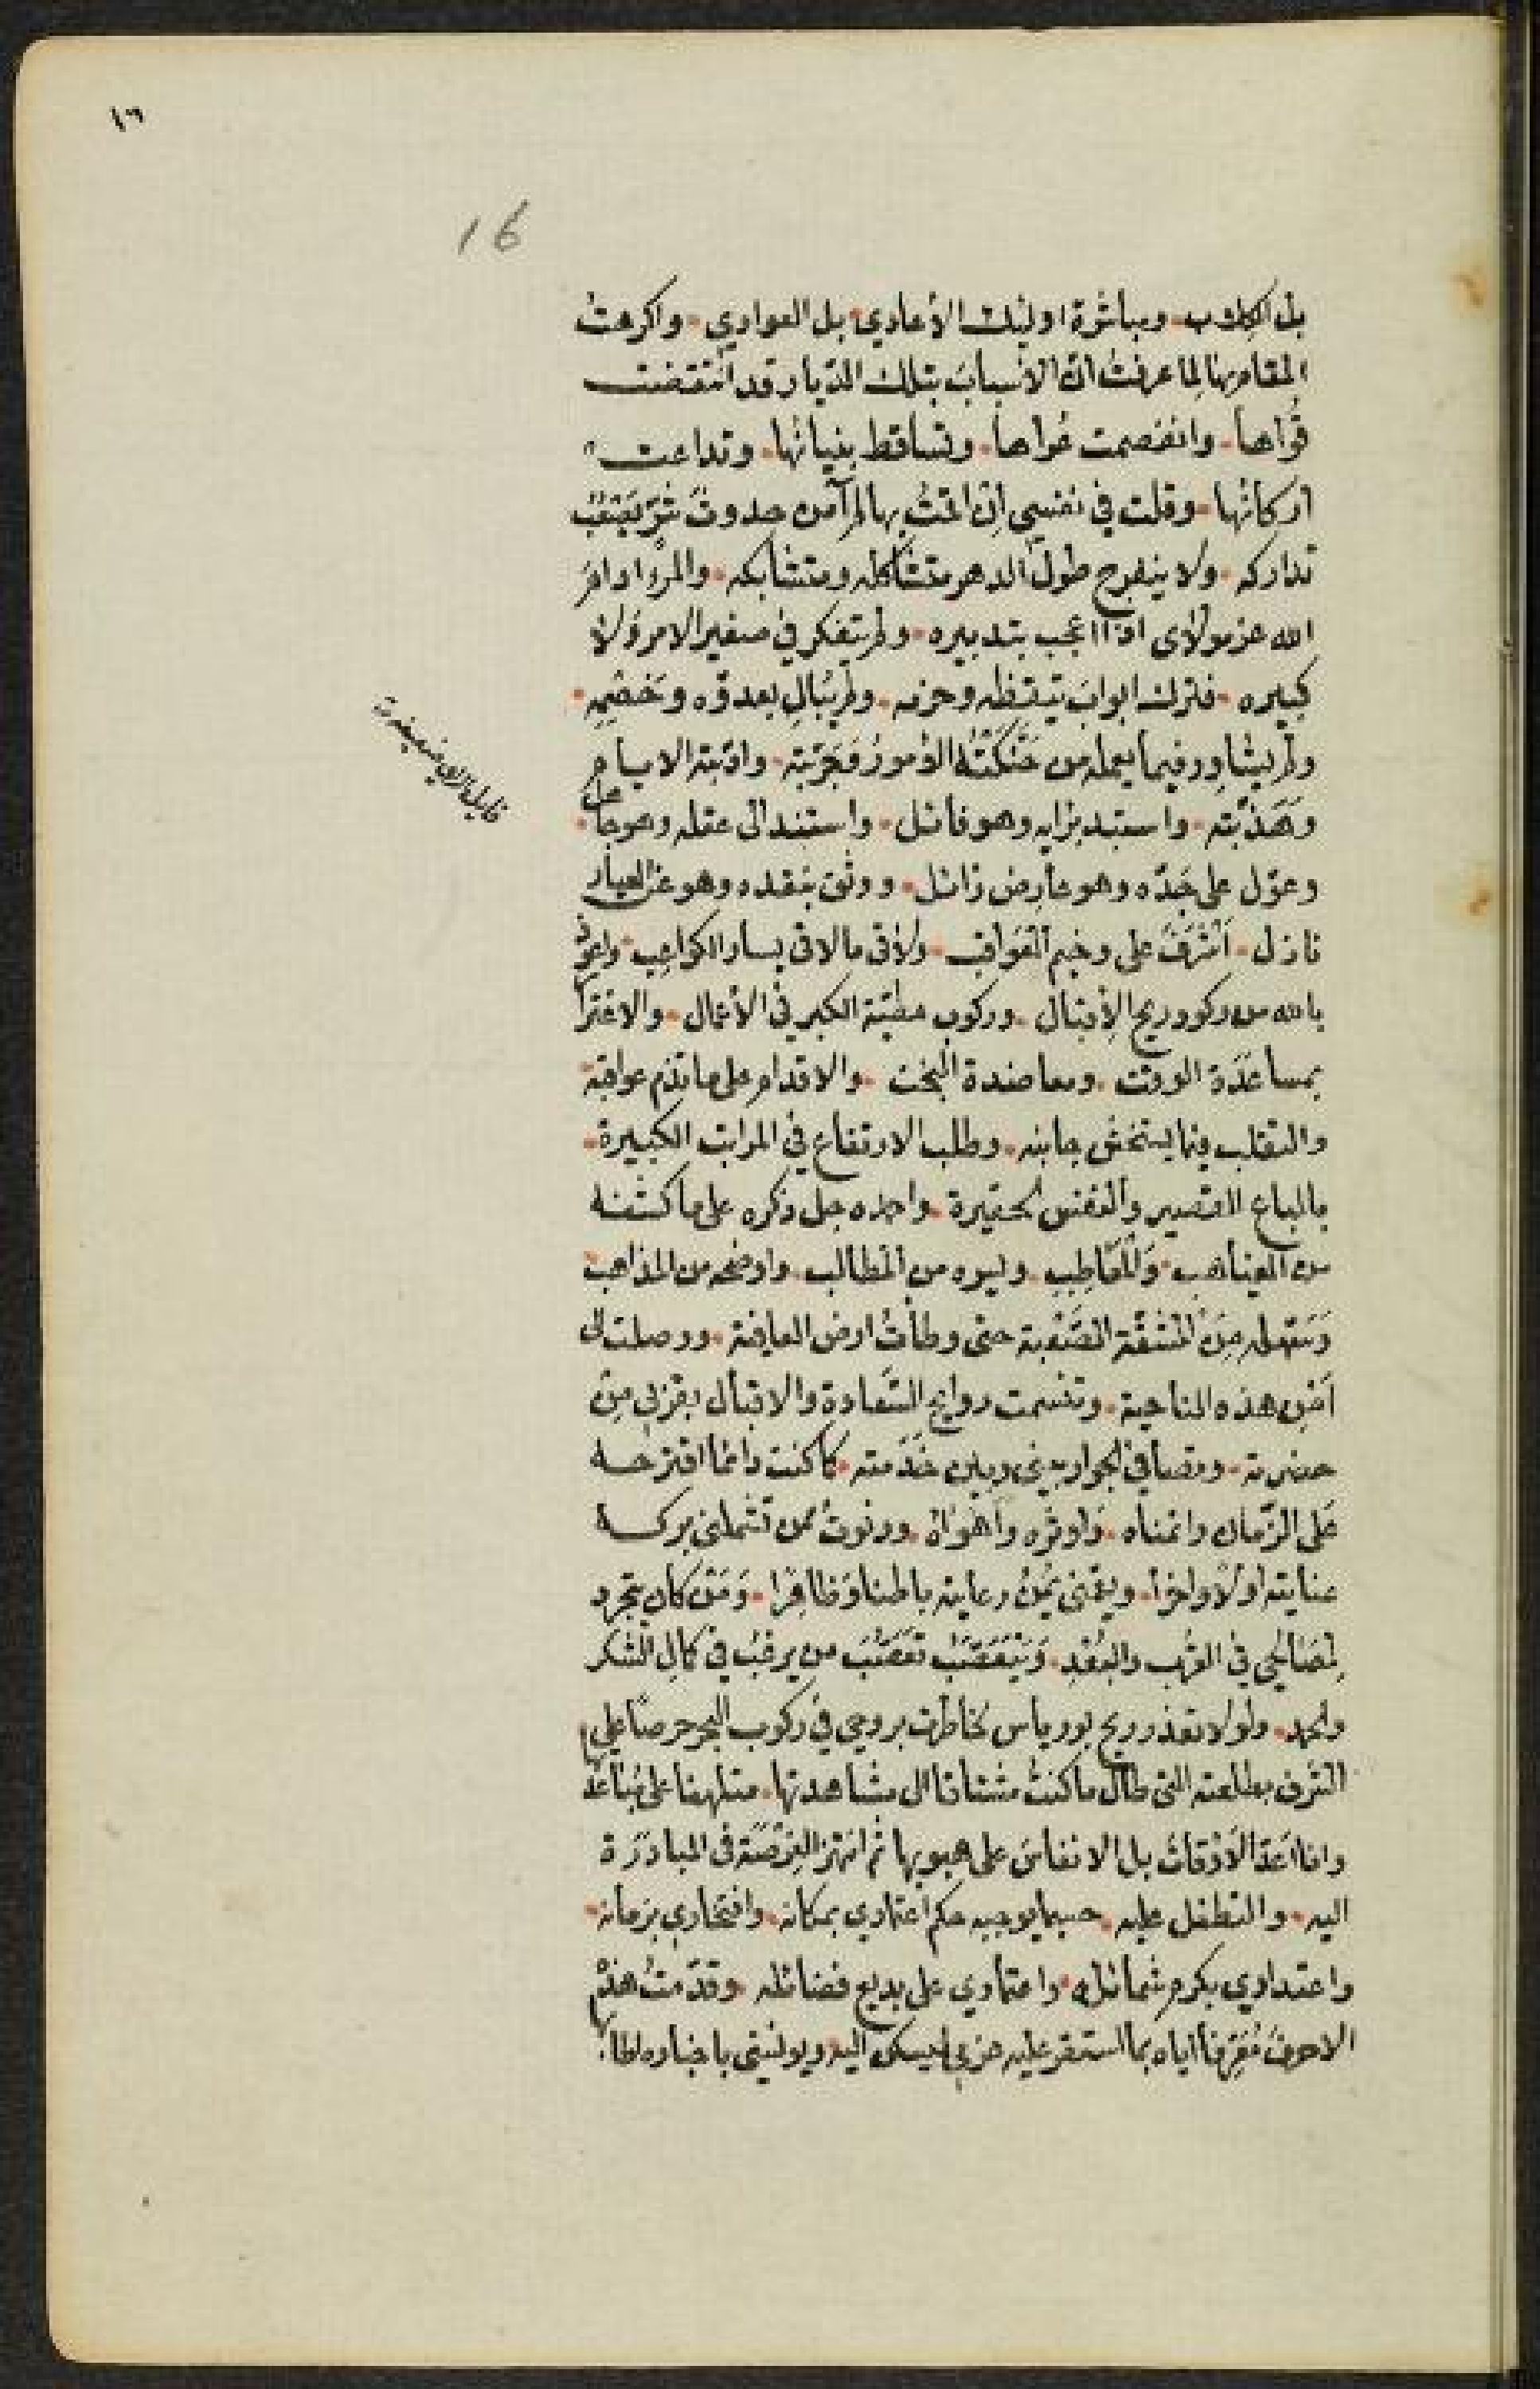 ١٦
16
بل الكلاب. ومباشرة اولئك الأعادي بل العوادي. واكرهت
المقام بها لما عرفت ان الاسباب بتلك الديار قد انتقضت
قُواها. وانفصمت عُراها. وتساقط بنيانُها. وتداعت
اركانُها. وقلت في نفسي إن اقمتُ بها لم آمن حدوث شرّ يصعب
تداركه. ولا ينفرج طول الدهر متشاكله ومتشابكه. والمرء ادام
الله عز مولاى اذا اعجب بتدبيره. ولم يتفكر في صغير الامر ولا
كبيره. فترك ابواب تيقظه وحزمه. ولم يُبالِ بعدوّه وخصمِه.
ولم يشاور فيما يعمله من حَنَّكَتْهُ الأمورُ وَجَرّبته. وادّبته الايام
وهَذّبته. واستبد برايه وهو فائل. واستند الى عقله وهو جاهل.
وعوّل على جَدّه وهو عارض زائل. ووثق بنقده وهو عن العيار
نازل. اَشْرَفَ على وخيم العَواقب. ولاقى مالاقى يسار الكواعب. واعوذ
بالله من ركود ريح الإقبال. وركوب مطيّة الكبر في الأعمال. والاغترار
بمساعَدَة الوقت. ومعاضدة البخت. والاقدام على ما تذم عواقبه
والتقلب فيما يستخشن جانبه. وطلب الارتفاع في المراتب الكبيرة.
بالباع القصير والنفس الحقيرة. واحمده جل ذكره على ما كشفه
من الغياهب. وَالمَعَاطِب. ويسره من المطالب. واوضحه من المذاهب
وَسَهله مِنَ المشقّة الصَّعْبة حتى وطأتُ ارض العافية. ووصلت الى
اَمْنِ هذه الناحية. وتنسمت روايح السَّعَادة والاقبال بقربي مِنْ
حضرته. وتصافي الجوار بيني وبين خدمته. كما كنت دائما اقترحه
عَلى الزّمان واتمناه. وَاوثره واهْواهُ. ودنوتُ ممن تشملني بركـة
عنايته اولاً واخراً. ويعمّنى يُمْنُ رعايته باطنا وَظاهِرًا. وَمَنْ كان يتجرد
لِمَصَالحِي في القُرب والبُعْد. وَيَتَعَصَّبُ تعَصُّبَ من يرغبُ في كمال الشكر
والحمد. ولولا تعذر ريح بورياس لخاطرت بروحي في ركوب البحر حرصًا على
التشرف بطلعته التى طال ما كنتُ مشتاقا الى مشاهدتها. متلهفا على مُباعدتها
وانا اعَدّ الأوْقات بل الانفاسَ على هبوبها ثم انتهز الفُرْصَة في المبادَرَة
اليه. والتطفل عليه. حسبما يوجبه حكم اعتمادي بمكانه. وافتخاري بزمانه.
واعتدادي بكرم شمائله. واعتمادي على بديع فضائله. وقدّمتُ هذه
الاحرفَ مُعَرِّفًا اياه بما استقر عليه عزمي ليسكن اليه ويؤنسني باخباره